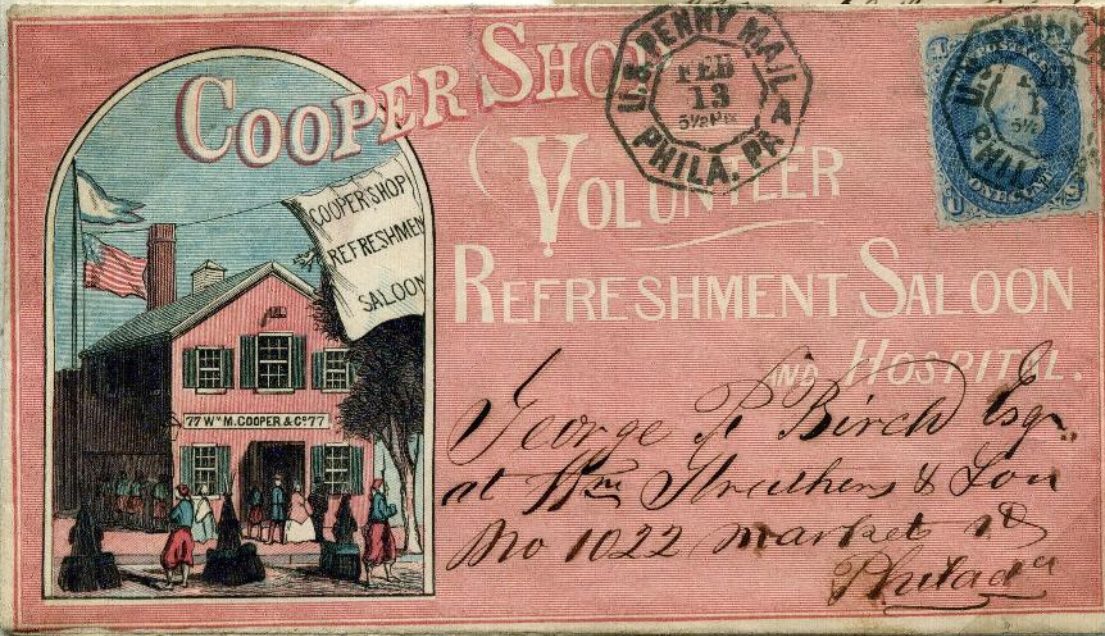 COOPER SHOP
VOLUNTEER
REFRESHMENT SALOON
AND HOSPITAL.
U.S. PENNY MAIL
FEB
13
5½ PM
PHILA. PA
U.S. POSTAGE
ONE CENT
COOPER SHOP
REFRESHMEN
SALOON
77 Wm M. COOPER & Co 77
George Birch Esqr.
at Wm Struthers & Son
No 1022 Market St
Philada